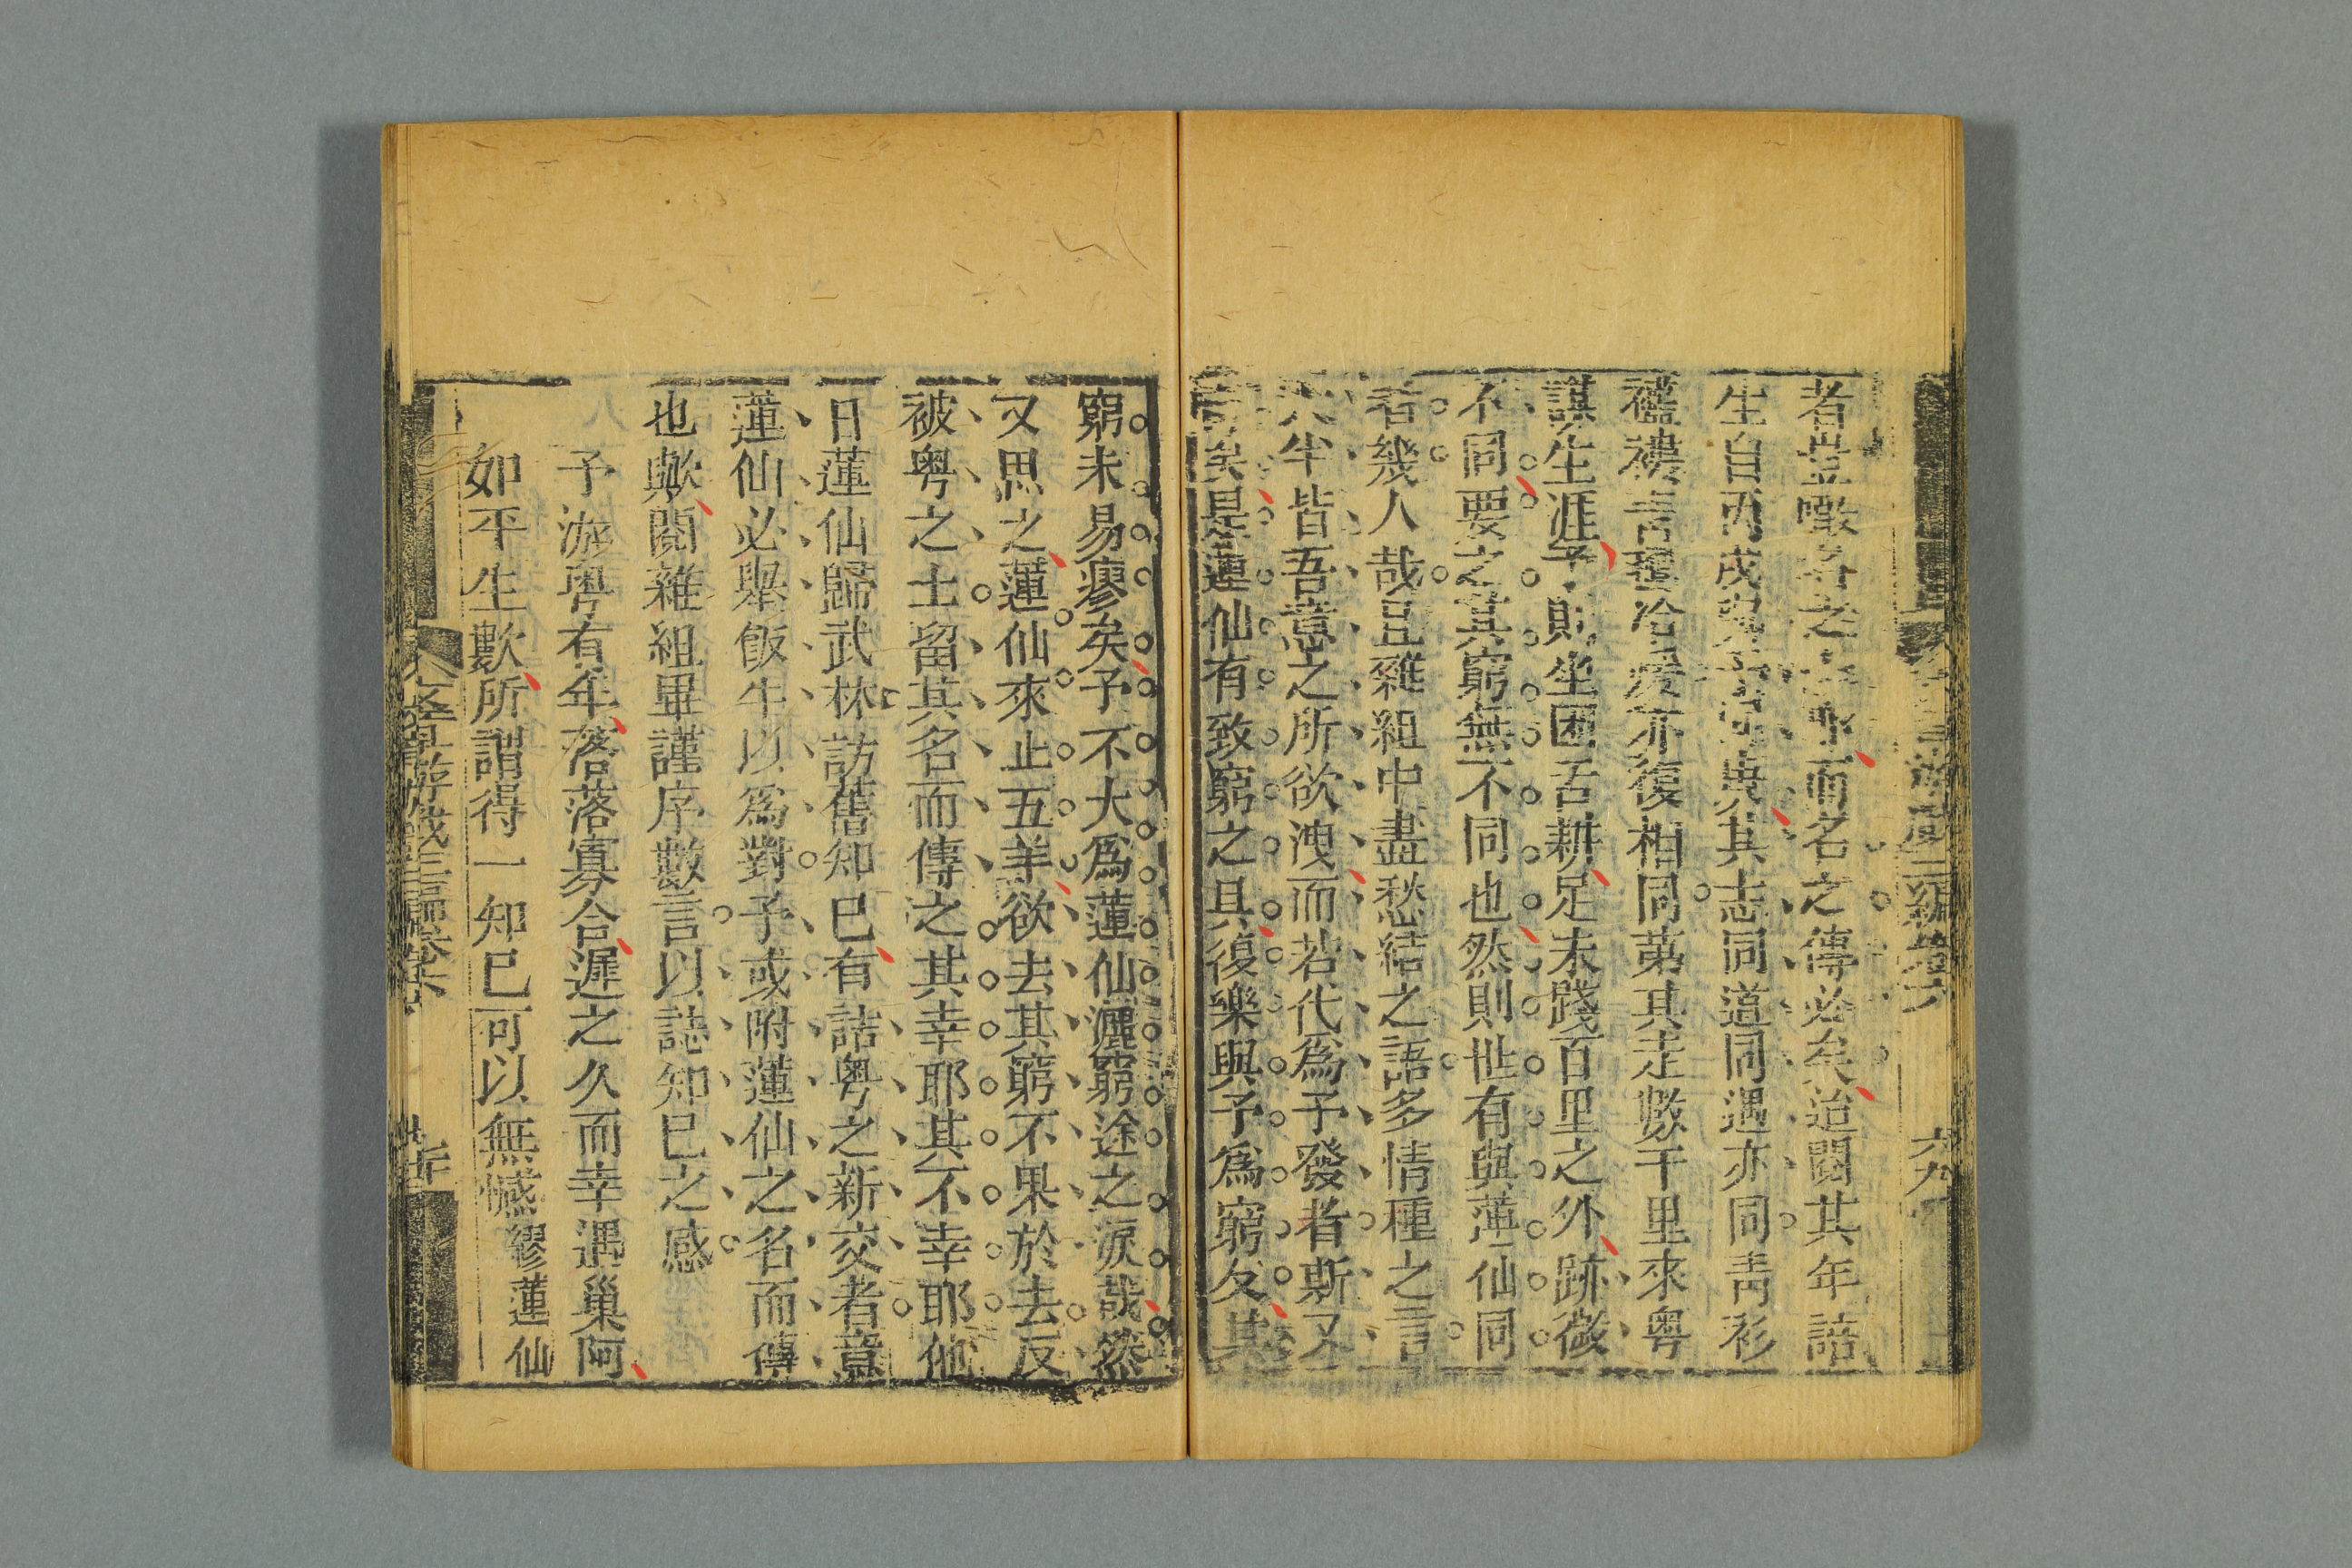 者豈噉名之而名之傳必矣迨閱其年譜
生自丙戌與其志同道同遇亦同靑衫
襤褸靑氊冷暖亦復相同第其走數千里來粤
謀生涯予則坐困舌耕足未踐百里之外跡微
不同要之其窮無不同也然則世有與蓮仙同
者幾人哉且雜組中盡愁結之語多情種之言
大半皆吾意之所欲洩而若代爲予發者斯又
奇矣是蓮仙有致窮之具復樂與予爲窮友其
窮未易瘳矣予不大爲蓮仙灑窮途之淚哉然
又思之蓮仙來止五羊欲去其窮不果於去反
被粤之士留其名而傳之其幸耶其不幸耶他
日蓮仙歸武林訪舊知已有詰粤之新交者意
蓮仙必舉飯牛以爲對予或附蓮仙之名而傳
也歟閱雜組畢謹序數言以誌知已之感
予游粤有年落落寡合遲之久而幸遇巢阿
如平生歡所謂得一知已可以無憾繆蓮仙